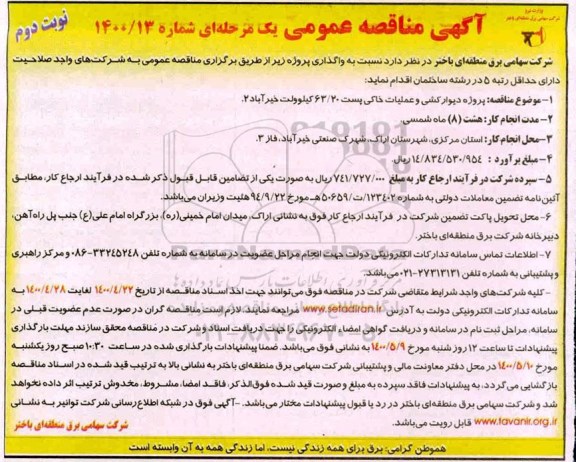 وزارت نیرو
شرکت سهامی برق منطقه‌ای باختر
آگهی مناقصه عمومی یک مرحله‌ای شماره ۱۴۰۰/۱۳
نوبت دوم
شرکت سهامی برق منطقه‌ای باختر در نظر دارد نسبت به واگذاری پروژه زیر از طریق برگزاری مناقصه عمومی به شرکت‌های واجد صلاحیت
دارای حداقل رتبه ۵ در رشته ساختمان اقدام نماید:
۱- موضوع مناقصه: پروژه دیوارکشی و عملیات خاکی پست ۶۳/۲۰ کیلوولت خیرآباد۲.
۲- مدت انجام کار: هشت (۸) ماه شمسی.
۳- محل انجام کار: استان مرکزی، شهرستان اراک، شهرک صنعتی خیرآباد، فاز ۳.
۴- مبلغ برآورد : ۱۴/۸۳۴/۵۳۰/۹۵۴ ریال.
۵- سپرده شرکت در فرآیند ارجاع کار به مبلغ ۷۴۱/۷۲۷/۰۰۰ ریال به صورت یکی از تضامین قابل قبول ذکر شده در فرآیند ارجاع کار، مطابق
آئین نامه تضمین معاملات دولتی به شماره ۱۲۳۴۰۲/ت/۵۰۶۵۹هـ مورخ ۹۴/۹/۲۲ هئیت وزیران می‌باشد.
۶- محل تحویل پاکت تضمین شرکت در فرآیند ارجاع کار فوق به نشانی اراک، میدان امام خمینی(ره)، بزرگراه امام علی(ع) جنب پل راه‌آهن،
دبیرخانه شرکت برق منطقه‌ای باختر.
۷- اطلاعات تماس سامانه تدارکات الکترونیکی دولت جهت انجام مراحل عضویت در سامانه به شماره تلفن ۳۳۲۴۵۲۴۸-۰۸۶ و مرکز راهبری
و پشتیبانی به شماره تلفن ۲۷۳۱۳۱۳۱-۰۲۱ می‌باشد.
- کلیه شرکت‌های واجد شرایط متقاضی شرکت در مناقصه فوق می‌توانند جهت اخذ اسناد مناقصه از تاریخ ۱۴۰۰/۴/۲۲ لغایت ۱۴۰۰/۴/۲۸ به
سامانه تدارکات الکترونیکی دولت به آدرس www.setadiran.ir مراجعه نمایند. لازم است مناقصه گران در صورت عدم عضویت قبلی در
سامانه، مراحل ثبت نام در سامانه و دریافت گواهی امضاء الکترونیکی را جهت دریافت اسناد و شرکت در مناقصه محقق سازند مهلت بارگذاری
پیشنهادات تا ساعت ۱۲ روز شنبه مورخ ۱۴۰۰/۵/۹ به نشانی فوق می‌باشد. ضمنا پیشنهادات بارگذاری شده در ساعت ۱۰:۳۰ صبح روز یکشنبه
مورخ ۱۴۰۰/۵/۱۰ در محل دفتر معاونت مالی و پشتیبانی شرکت سهامی برق منطقه‌ای باختر به نشانی بالا به ترتیب قید شده در اسناد مناقصه
بازگشایی می‌گردد. به پیشنهادات فاقد سپرده به مبلغ و صورت قید شده فوق‌الذکر، فاقد امضا، مشروط، مخدوش ترتیب اثر داده نخواهد
شد و شرکت سهامی برق منطقه‌ای باختر در رد یا قبول پیشنهادات مختار می‌باشد. - آگهی فوق در شبکه اطلاع‌رسانی شرکت توانیر به نشانی
www.tavanir.org.ir قابل رویت می‌باشد.
شرکت سهامی برق منطقه‌ای باختر
هموطن گرامی: برق برای همه زندگی نیست، اما زندگی همه به آن وابسته است